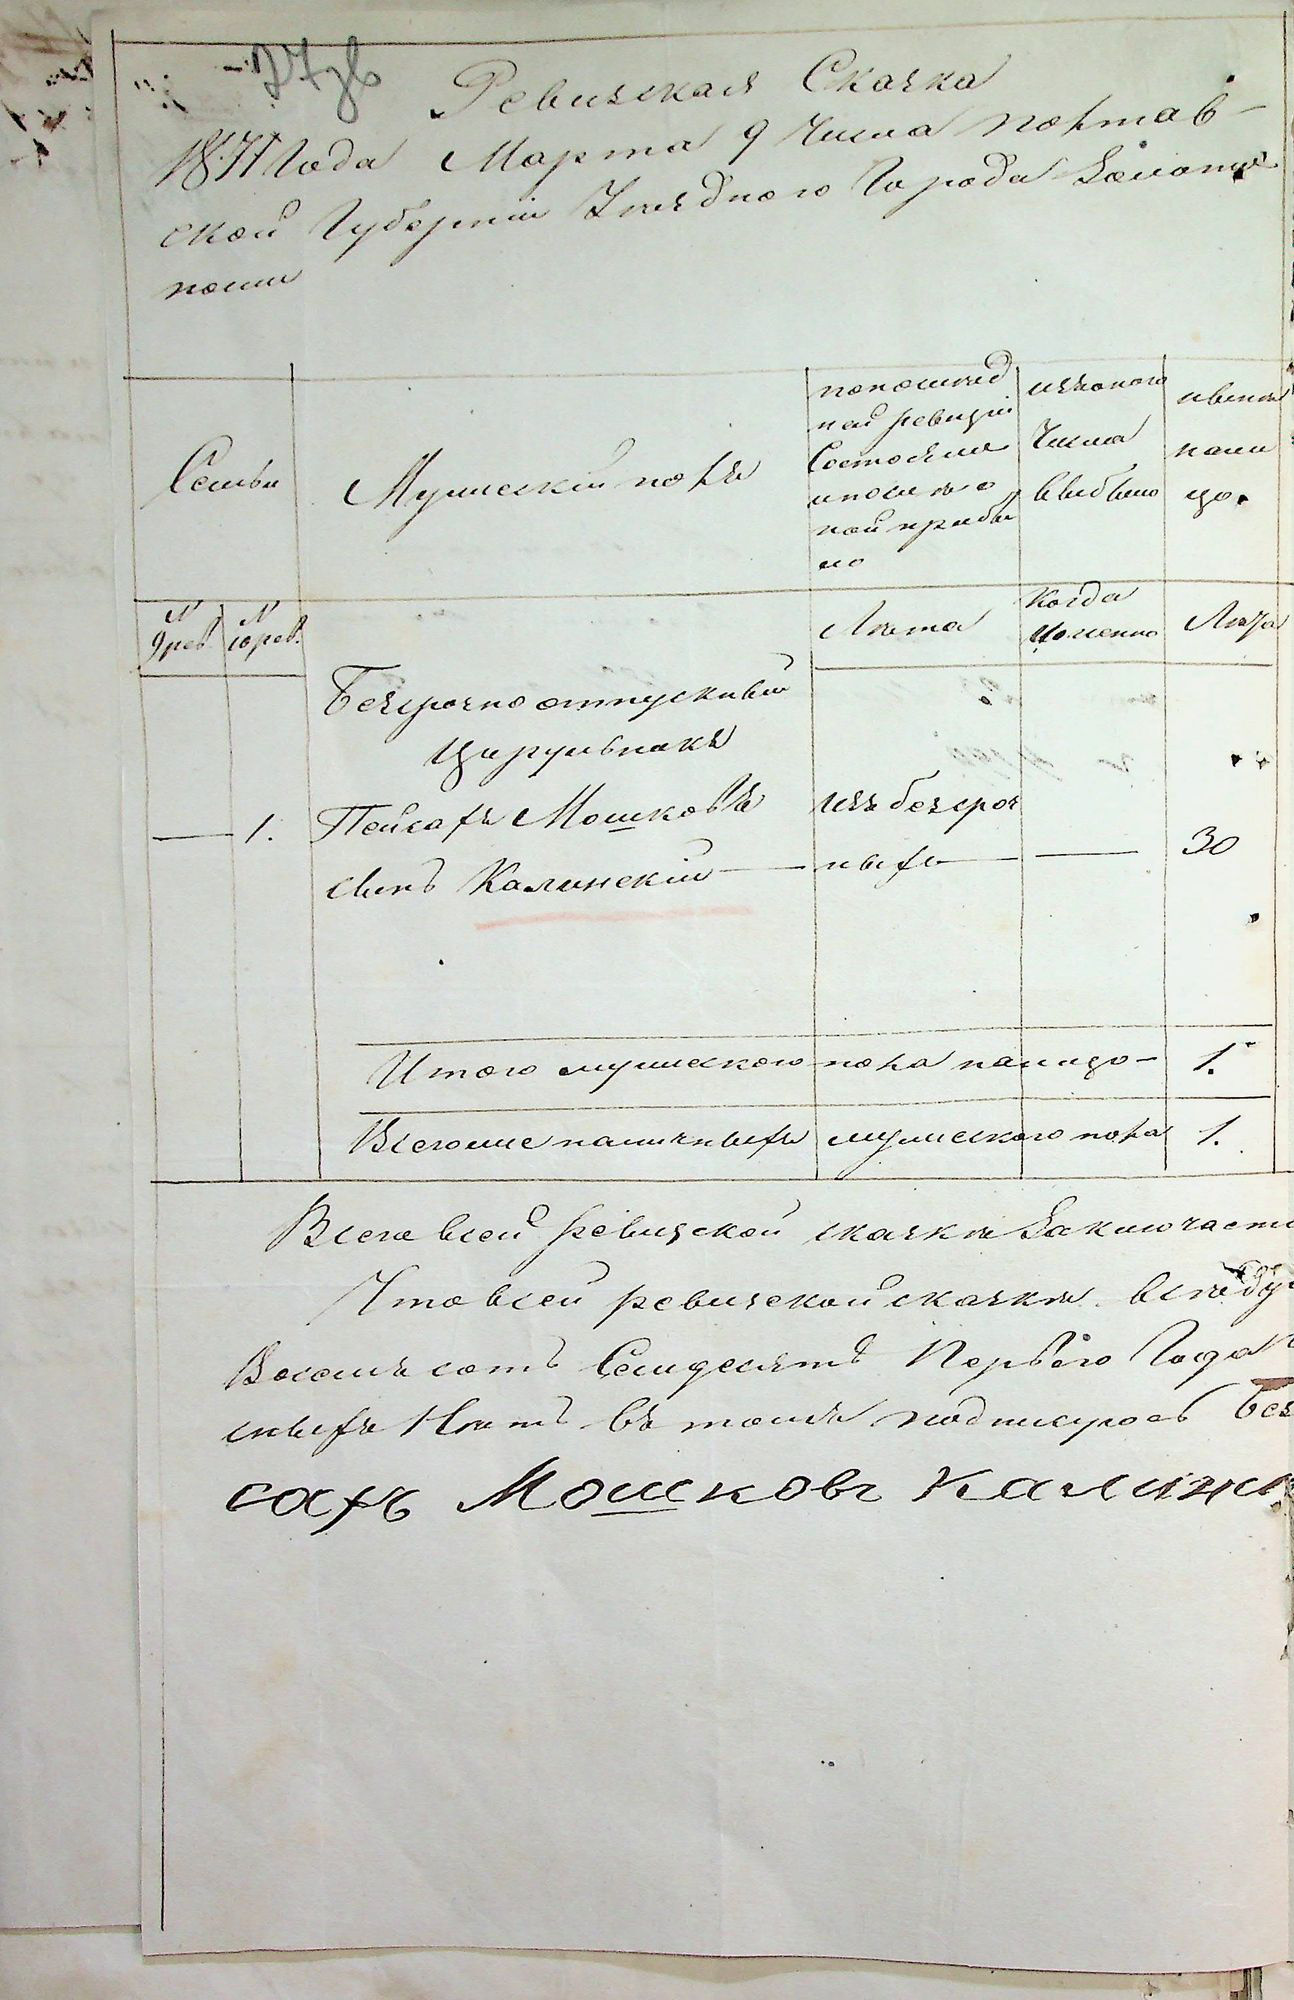 27зв
Ревизская Сказка
1871 Года Марта 9 Числа полтав-
ской Губерніи Уезднаго Города Золото
ноши
Семьи
Мужескій полъ
попослед
ней ревизіи
Состояло
ипосле
ной прибы
ло
изъ оного
Числа
выбыло
ныне
нали
цо.
№
9 рев.
№
10 рев.
Лета
Когда
Именно
Лета
Безсрочно отпускный
Цирульникъ
1. Пейсахъ Мошковъ изъ безсроч 30
сынъ Калинскій ныхъ
Итого мужескаго пола налицо - 1.
Всего же наличныхъ мужескаго пола 1.
Всего в сей ревизской сказке Заключаетс
Что в сей ревизской сказке
Восемь сотъ Семдесятъ Первого Года
сныхъ Нетъ въ томъ подписуюсь Без
сахъ Мошковъ Калин